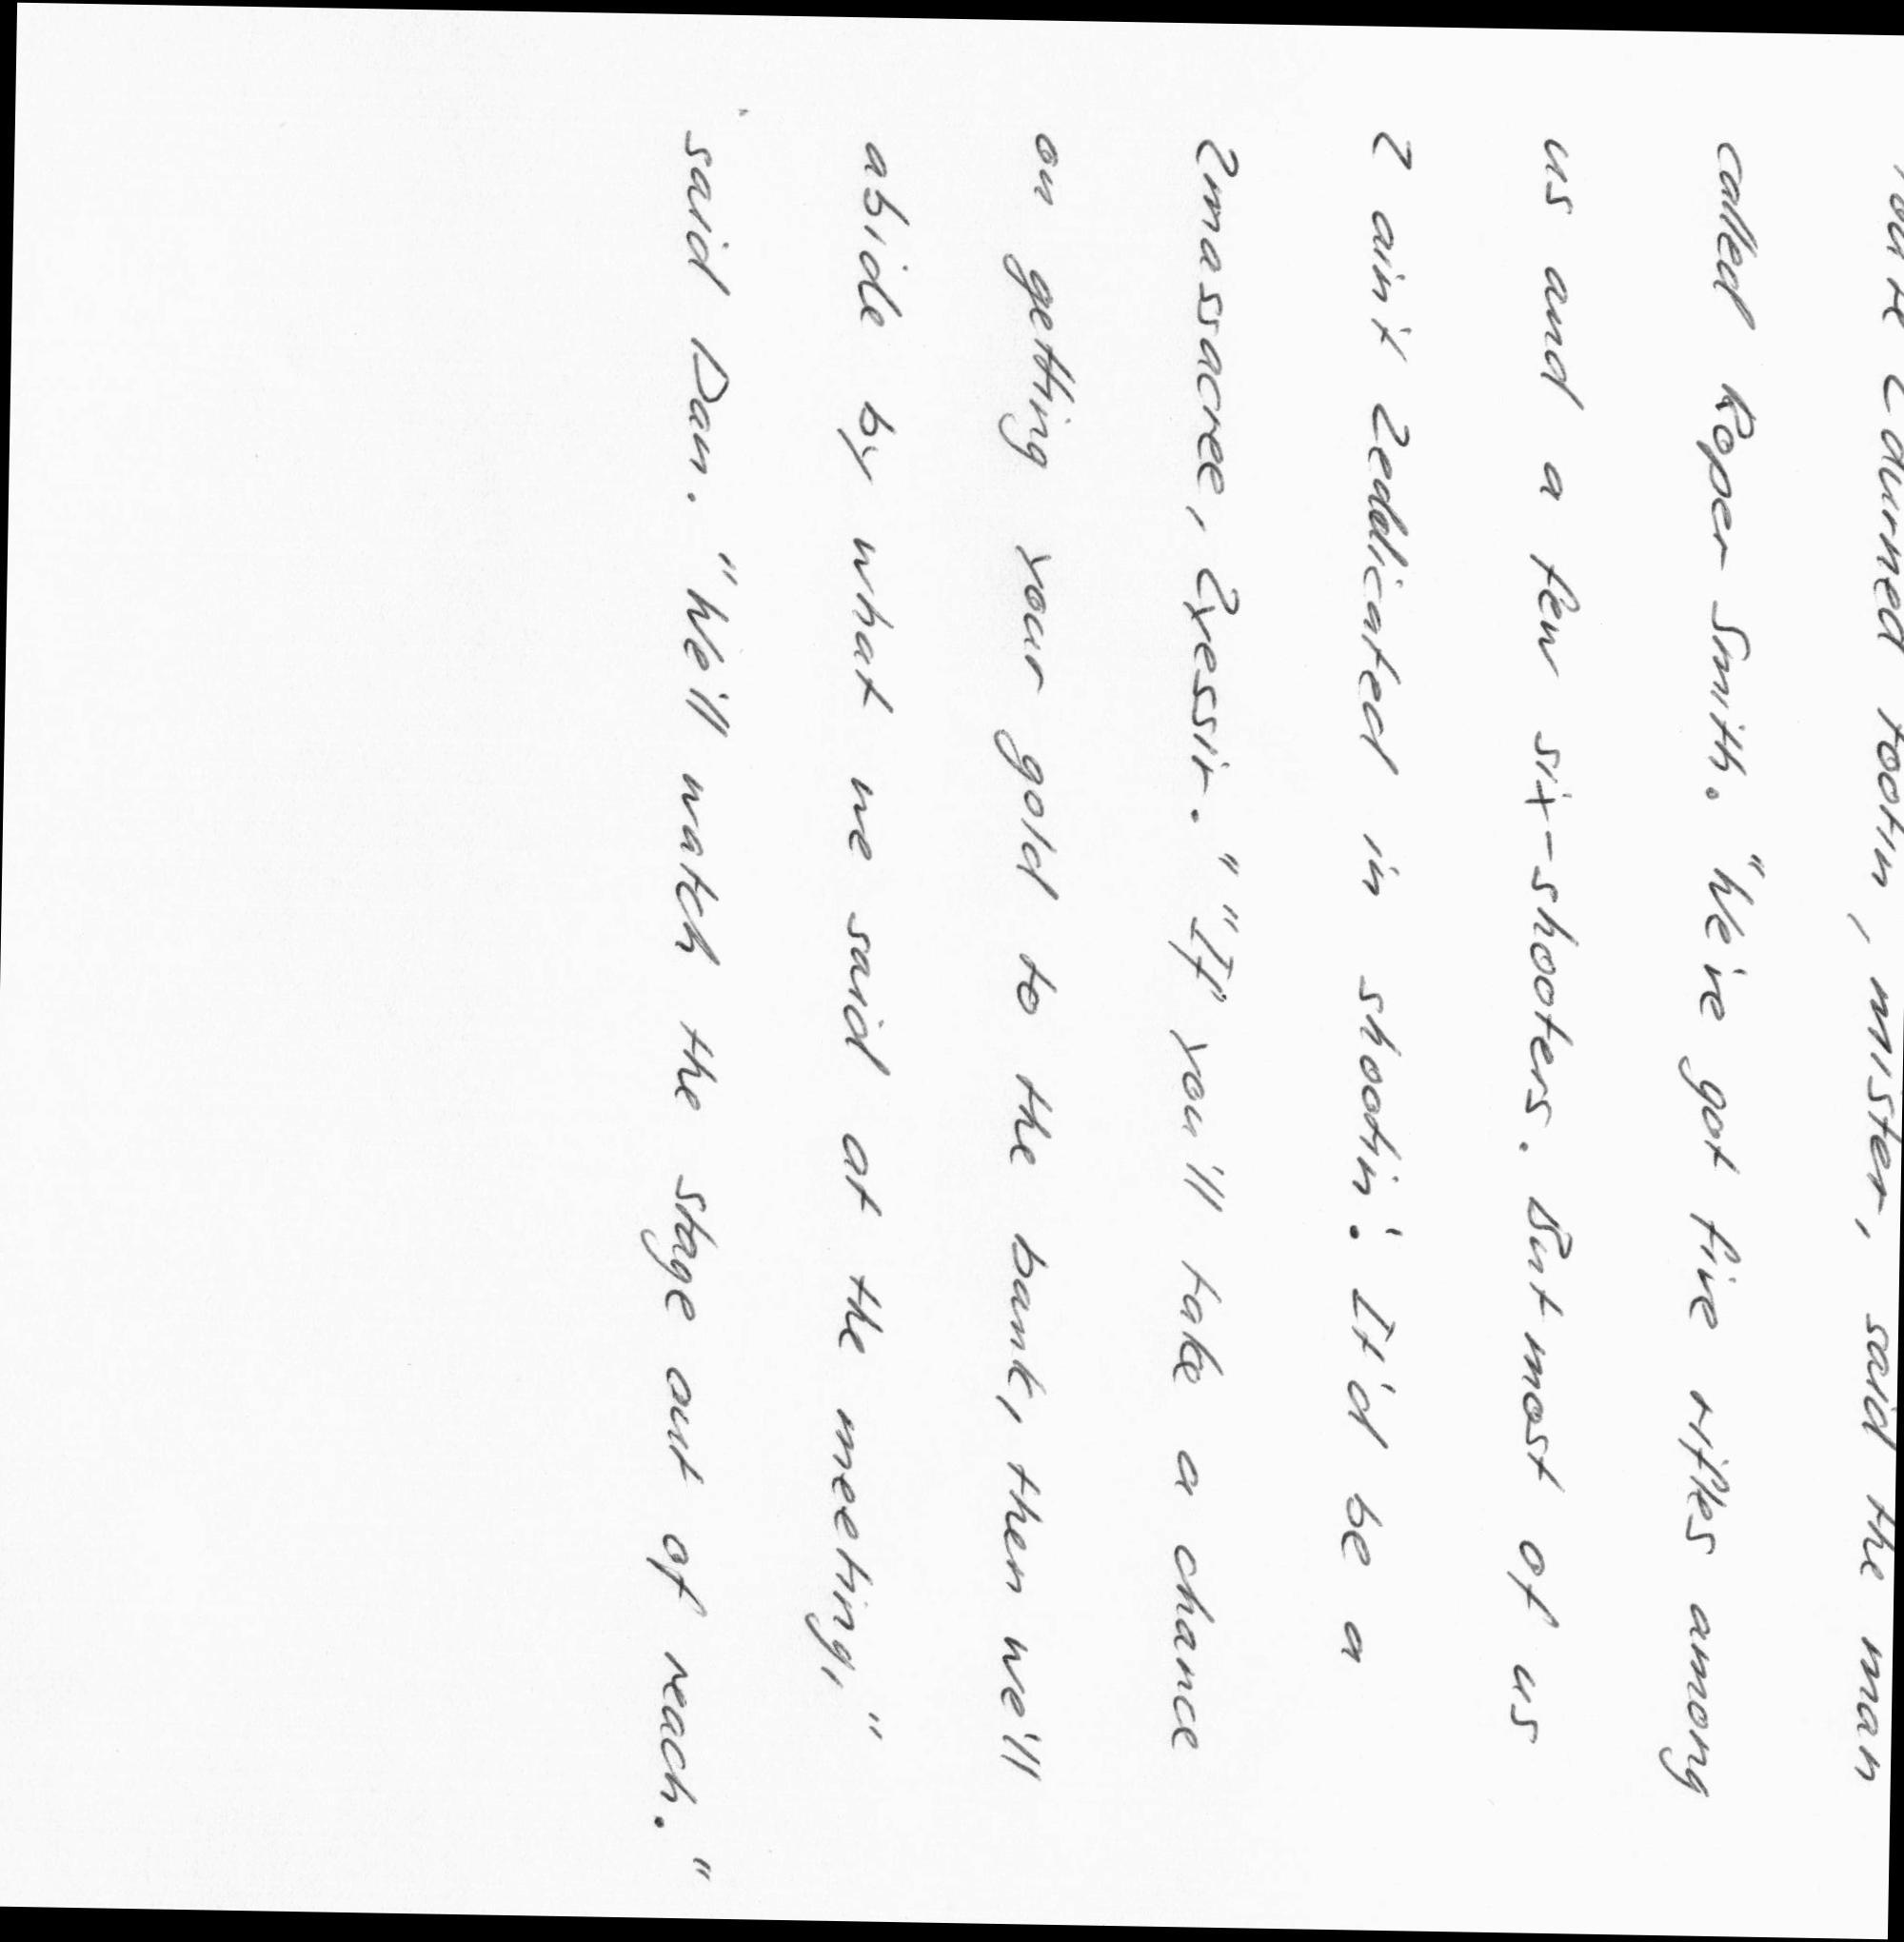 2durned tootin, mister, said the man
called Roper Smith. "We've got five rifles among
us and a few six-shooters. But most of us
2 ain't 2eddicated in shootin'. It'd be a
2massacree, 2yessir." "If you'll take a chance
on getting your gold to the bank, then we'll
abide by what we said at the meeting,"
said Dan. "We'll watch the stage out of reach."